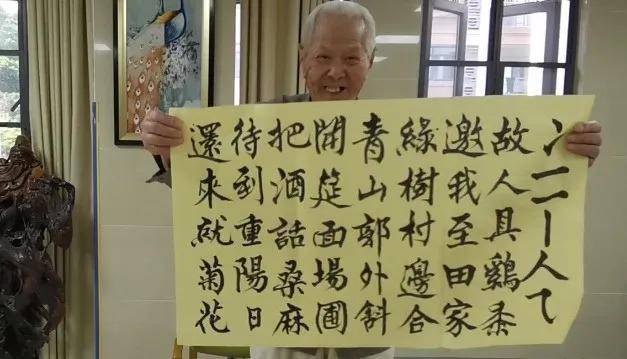 故人具鷄黍
邀我至田家
綠樹村邊合
青山郭外斜
開筵面場圃
把酒話桑麻
待到重陽日
還來就菊花